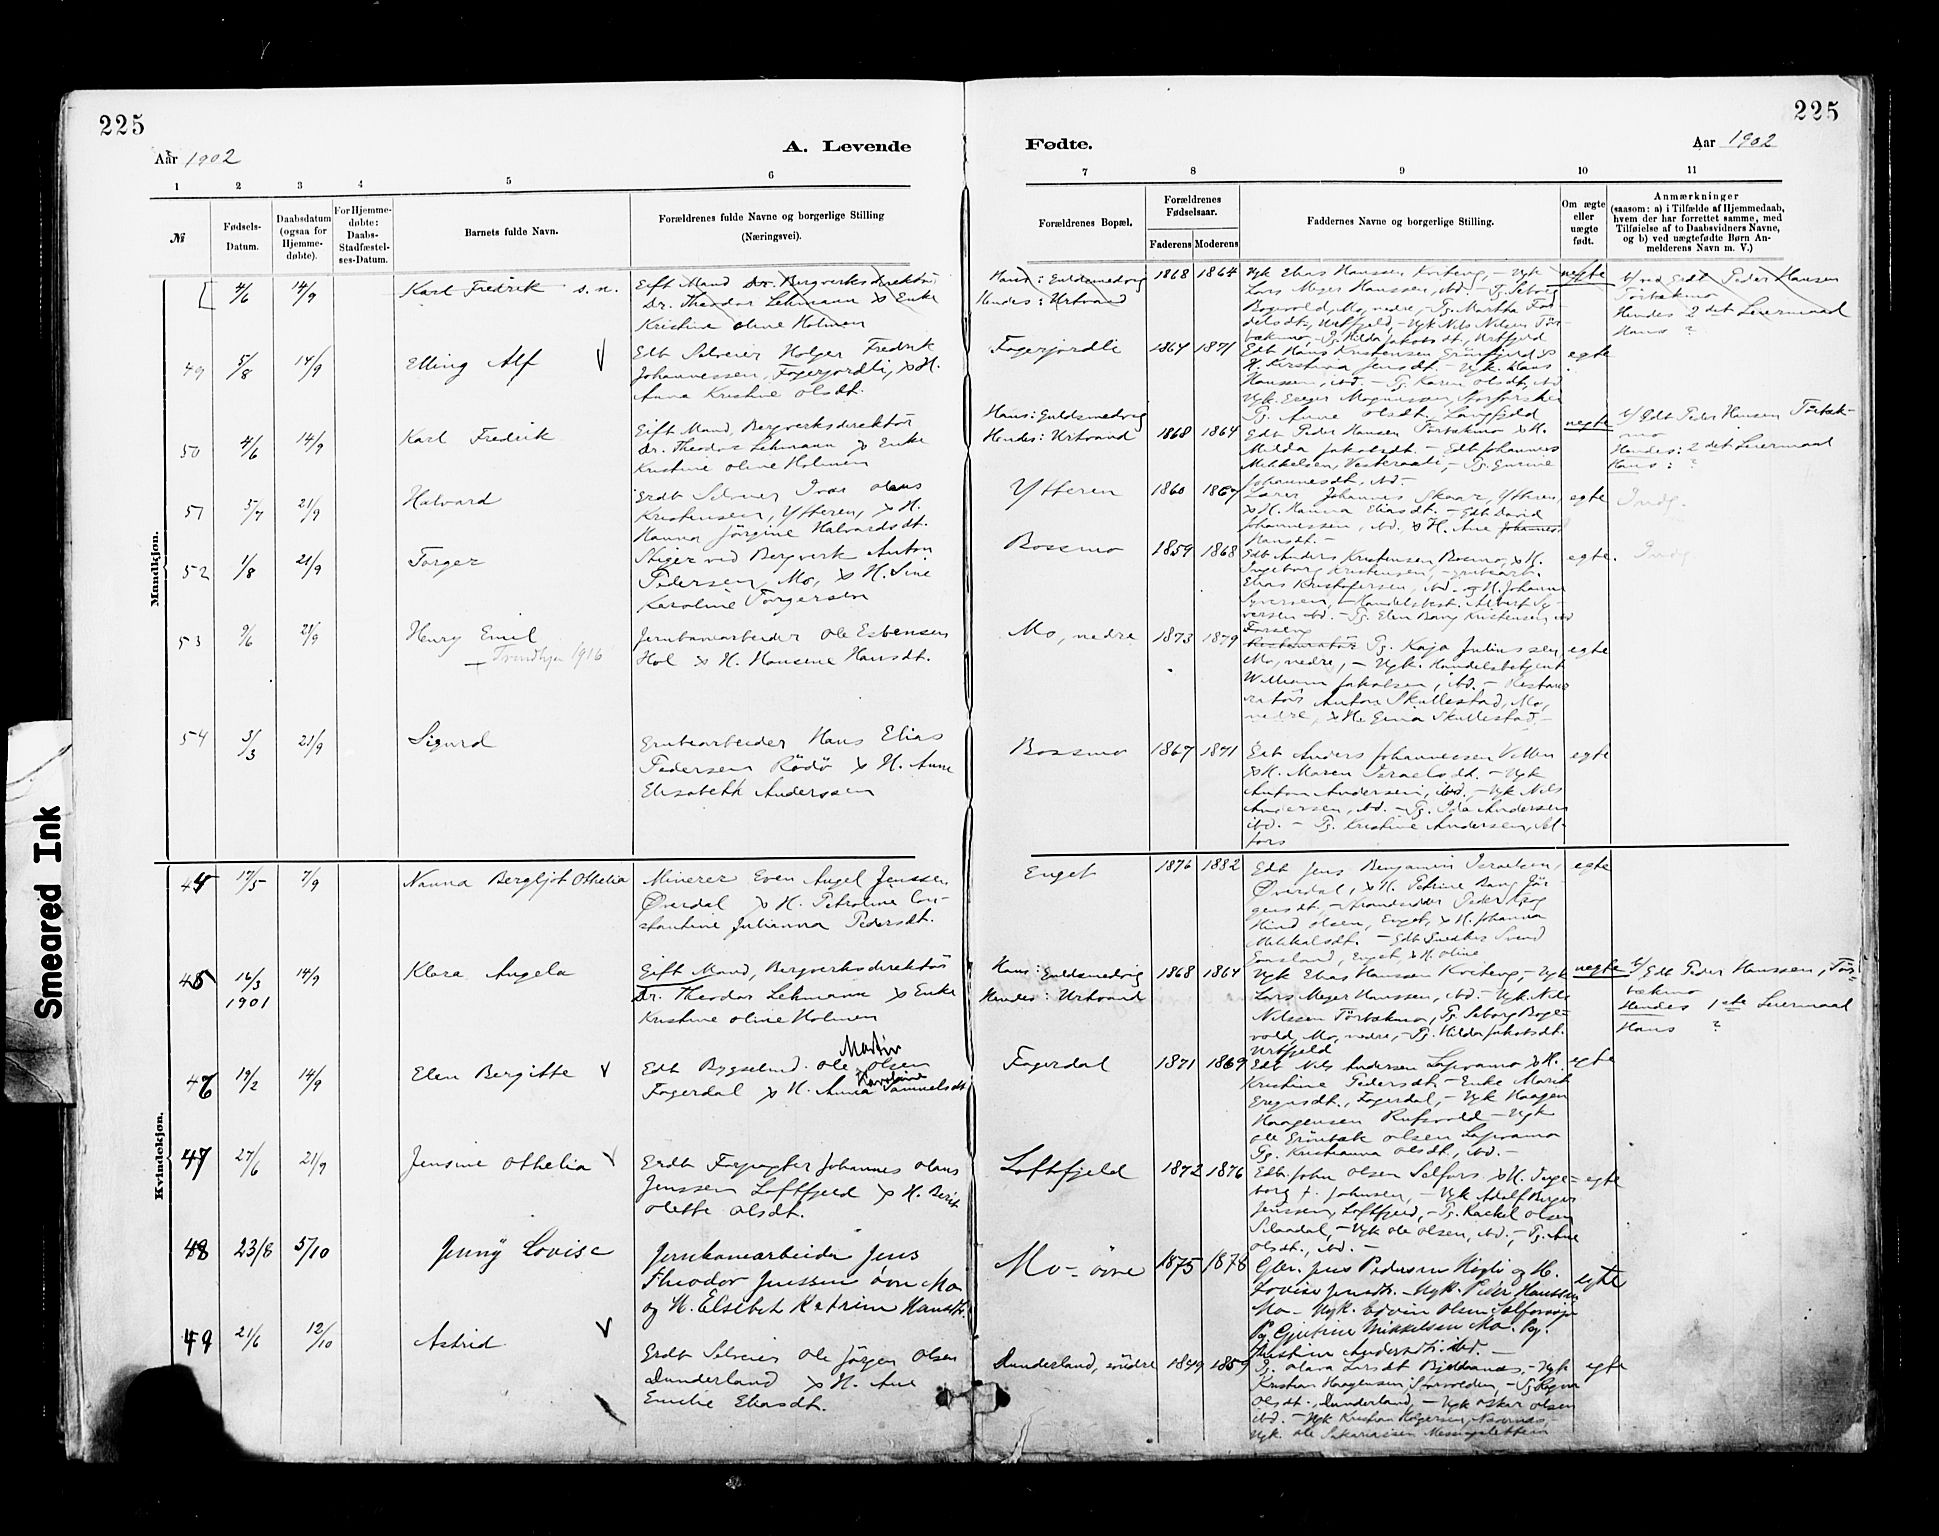 225
225
Aar 1902
A. Levende
Fødte.
Aar 1902
1 2 3 4 5 6 7 8 9 10 11
№
Fødsels-
Datum.
Daabsdatum
(ogsaa for
Hjemme-
døbte).
For Hjemme-
døbte:
Daabs-
Stadfæstel-
ses-Datum.
Barnets fulde Navn.
Forældrenes fulde Navne og borgerlige Stilling
(Næringsvei).
Forældrenes Bopæl.
Forældrenes
Fødselsaar.
Faderens Moderens
Faddernes Navne og borgerlige Stilling.
Om ægte
eller
uægte
født.
Anmærkninger
(saasom: a) i Tilfælde af Hjemmedaab,
hvem der har forrettet samme, med
Tilføielse af to Daabsvidners Navne,
og b) ved uægtefødte Børn An-
melderens Navn m. V.)
Mandkjøn.
4/6 14/9 Karl Fredrik s. n.
Gift Mand Dr. Bergverksdirektör
Dr. Theodor Lehmann & Enke
Kristine Oline Holmen
Hans: Guldsmedvig
Hendes: Urtvand
1868 1864
Ugk Elias Hanssen Kviteng, - Ugk
Lars Meyer Hanssen, ibd. - Pg. Seborg
uegte
b/ ved Gdt Peder Hansen
Törbækmo
Hendes 2det Leiermaal
Hans ?
49 5/8 14/9 Elling Alf
Edt Selveier Holger Fredrik
Johannessen, Fagerjordli, & H.
Anna Kristine Olsdt.
Fagerjordli
1864 1871
H. Kirstina Jensdt. - Ugk. Hans
Hanssen, ibd. - Pg. Karen Olsdt, ibd
Pg. Anne Olsdt. Langfjeld
egte
50 4/6 14/9 Karl Fredrik
Gift Mand, Bergverksdirektör
Dr. Theodor Lehmann & Enke
Kristine Oline Holmen
Hans: Guldsmedvig
Hendes: Urtvand
1868 1864
Gdt Peder Hansen Törbækmo & H.
Milda Jakobsdt - Gdt Johannes
Johannesdt, ibd. -
uegte
b/ Gdt Peder Hansen Törbæk-
mo
Hendes: 2det Leiermaal
Hans: ?
51 5/7 21/9 Halvard
Grdt Selveier Ivar Olaus
Kristensen, Ytteren, & H.
Hanna Jörgine Halvardsdt.
Ytteren
1860 1867
Lærer Johannes Skaar, Ytteren
& H. Hanna Eliasdt. - Gdt David
Johannessen, ibd. & H. Ane Johannes
Hansdt. -
egte
Indg.
52 1/8 21/9 Torger
Stiger ved Bergverk Anton
Pedersen, Mo, & H. Sine
Karoline Torgersen
Bossmo
1859 1868
Gdt Anders Kristensen Bosmo, & H.
Ingeborg Kristensen, - Grubearb.
Elias Kristofersen, ibd. og H. Johanna
Syversen, - Handelsbest. Albert Sy-
versen ibd. - Pg. Elen Bang Kristensen, ibd
egte.
Indg
53 9/6 21/9 Henry Emil
Trondhjem 1916
Jernbanearbeider Ole Esbensen
Hol & H. Hansine Hansdt.
Mo, nedre
1873 1879
Restauratör Pg. Kaja Juliussen
Mo, nedre, - Ugk. Handelsbetjent
William Jakobsen, ibd. - Restau-
ratör Anton Skullestad, Mo,
nedre, & H. Gina Skullestad, -
egte
54 3/3 21/9 Sigurd
Grubearbeider Hans Elias
Pedersen Rödö & H. Anne
Elisabeth Anderssen
Bossmo
1867 1871
Gdt Anders Johannessen Vollen
& H. Maren Israelsdt. - Ugk
Anton Andersen, ibd, - Ugk Nils
Andersen, ibd. - Pg. Ida Andersen
ibd. - Pg. Kristine Andersen, Sel-
fors
egte
Kvindekjøn.
44 17/5 7/9 Nanna Bergljot Othelia
Minerer Even Angel Jenssen
Överdal & H. Petroline Con-
stantine Julianna Pedersdt.
Enget
1876 1882
Gdt Jens Benjamin Israelsen,
Överdal, & H. Petrine Bang Jör-
gensdt. - Strandsidder Peder Krog
Hind Olsen, Enget, & H. Johanna
Mikkalsdt. - Gdt Snedker Svend
egte
45 16/3 14/9 Klara Angela
1901
Gift Mand, Bergverksdirektör
Dr. Theodor Lehmann & Enke
Kristine Oline Holmen
Hans: Guldsmedvig
Hendes: Urtvand
1868 1864
Ugk Elias Hanssen Kviteng, - Ugk
Lars Meyer Hanssen, ibd. - Ugk. Nils
Nilssen Törbækmo, Pg. Seborg Boge-
vold, Mo, nedre, - Pg. Hilda Jakobsdt.
Urtfjeld
uegte
b/ Gdt Peder Hanssen, Tör-
bækmo
Hendes 1ste Leiermaal
Hans ?
46 19/2 14/9 Elen Bergitte
Edt Bygselmd. Ole Martin Olsen
Fagerdal & H. Anna Karoline Samuelsdt
Fagerdal
1871 1869
Edt Nils Andersen Lapvamo & H.
Kristine Pedersdt - Enke Marit
Haagensen Rufsvold - Ugk
Ole Grönbæk Olsen Lapvamo
Pg. Kristianna Olsdt, ibd. -
egte
47 27/6 21/9 Jensine Othelia
Grdt Forpagter Johannes Olaus
Jenssen Loftfjeld & H. Berit
Olette Olsdt.
Loftfjeld
1872 1876
Edt John Olsen Selfors & H. Inge-
borg t. Johnsen, - Ugk Adolf Berger
Jenssen, Loftfjeld, - Pg. Rachel Olsen
Selandal, - Ugk Ole Olsen, ibd., - Pg. Ane
Olsdt., ibd. -
egte
48 23/8 5/10 Jenny Lovise
Jernbanearbeider Jens
Theodor Jenssen övre Mo
og H. Elsebet Katrine Hansdt.
Mo - övre
1875 1878
Gbr. Jens Pedersen Høgli og H.
Lovise Jensdt. - Ugk. Peder Hanssen
Pg. Gjertine Mikkelsen Mo. Pg.
Kristine Andersdt. ibd. -
egte
49 21/6 12/10 Astrid
Grdt Selveier Ole Jörgen Olsen
Dunderland & H. Ane
Emelie Eliasdt.
Dunderland, söndre
1849 1859
Pg. Olava Larsdt Bjeldaanes, - Ugk
Kristian Haagensen, Storvolden, - Pg Regine
Olsdt., Dunderland, - Ugk Oskar Olsen
ibd. - Ugk Kristian Holgersen, Nævernes,
Ugk. Ole Sakariassen Messingsletten
egte
Smeared Ink